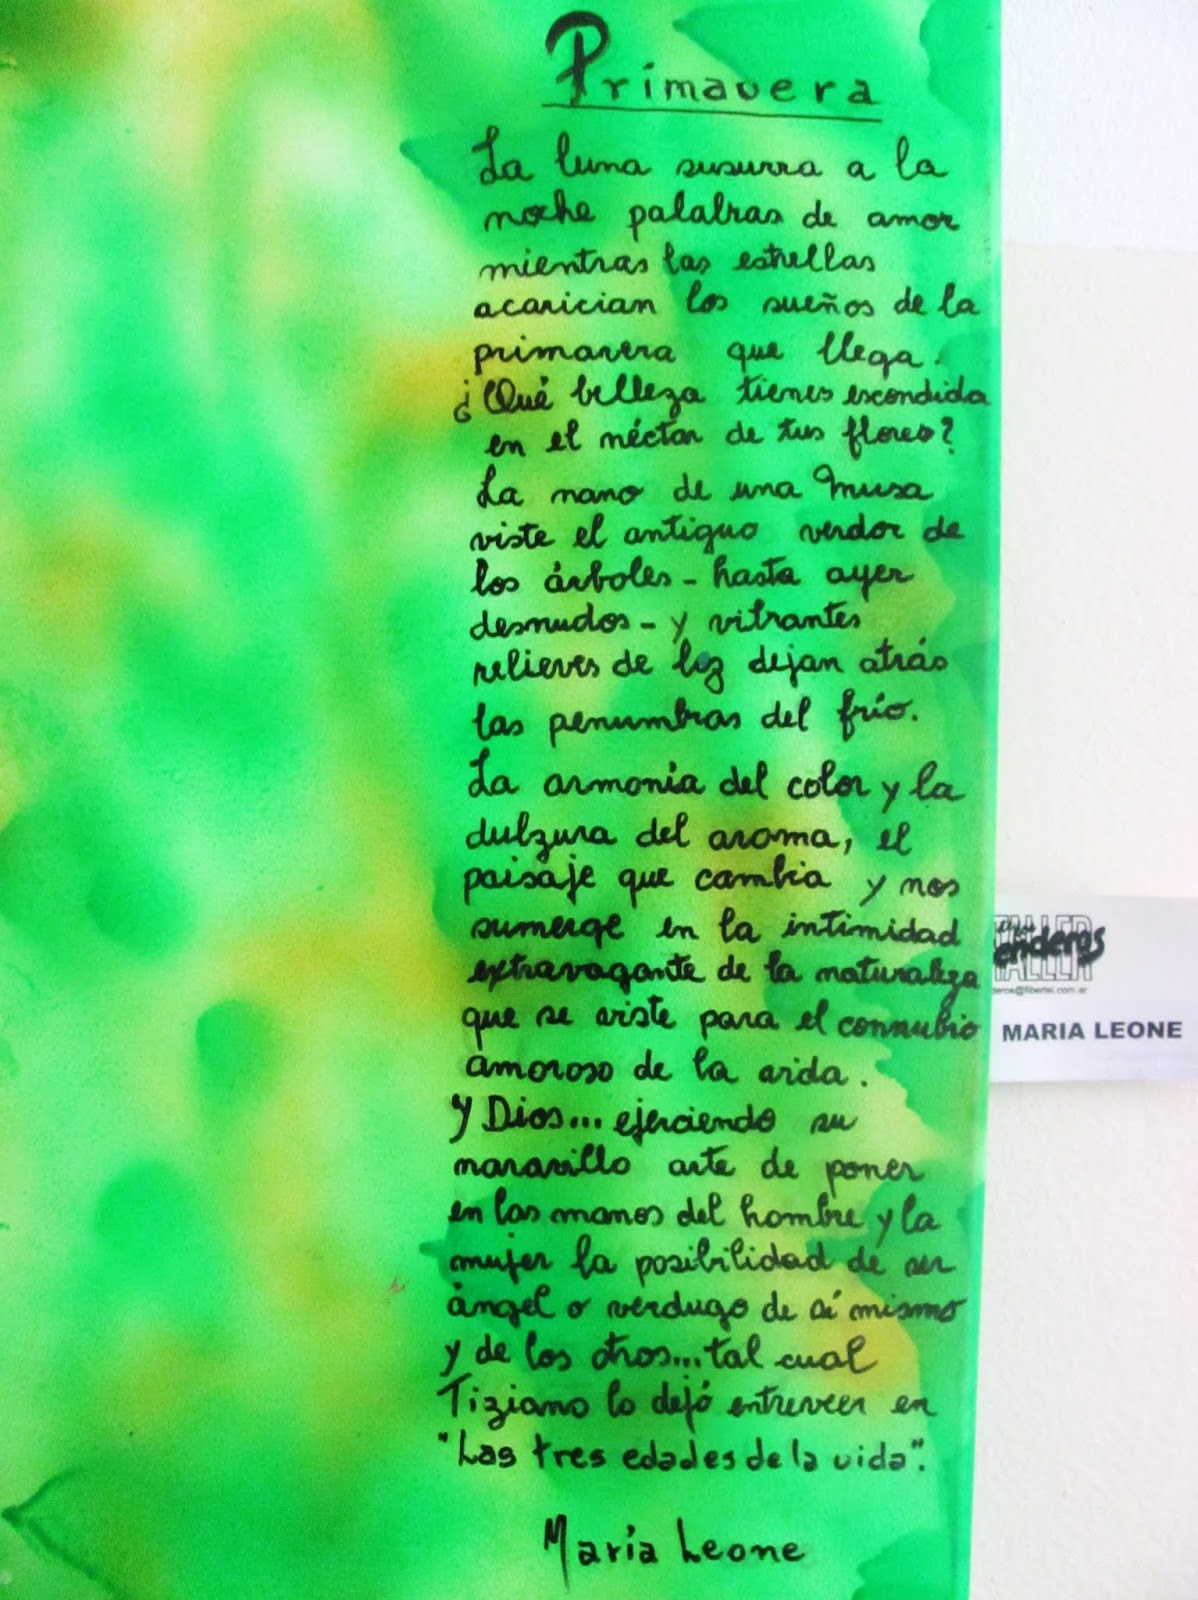 Primavera
La luna susurra a la
noche palabras de amor
mientras las estrellas
acarician los sueños de la
primavera que llega.
¿Qué belleza tienes escondida
en el néctar de tus flores?
La mano de una Musa
viste el antiguo verdor de
los árboles - hasta ayer
desnudos - y vibrantes
relieves de luz dejan atrás
las penumbras del frío.
La armonía del color y la
dulzura del aroma, el
paisaje que cambia y nos
sumerge en la intimidad
extravagante de la naturaleza
que se viste para el connubio
amoroso de la vida.
Y Dios... ejerciendo su
maravillo arte de poner
en las manos del hombre y la
mujer la posibilidad de ser
ángel o verdugo de sí mismo
y de los otros... tal cual
Tiziano lo dejó entreveer en
"Las tres edades de la vida".
María Leone
TALLER
enderos
deros@fibertel.com.ar
MARIA LEONE